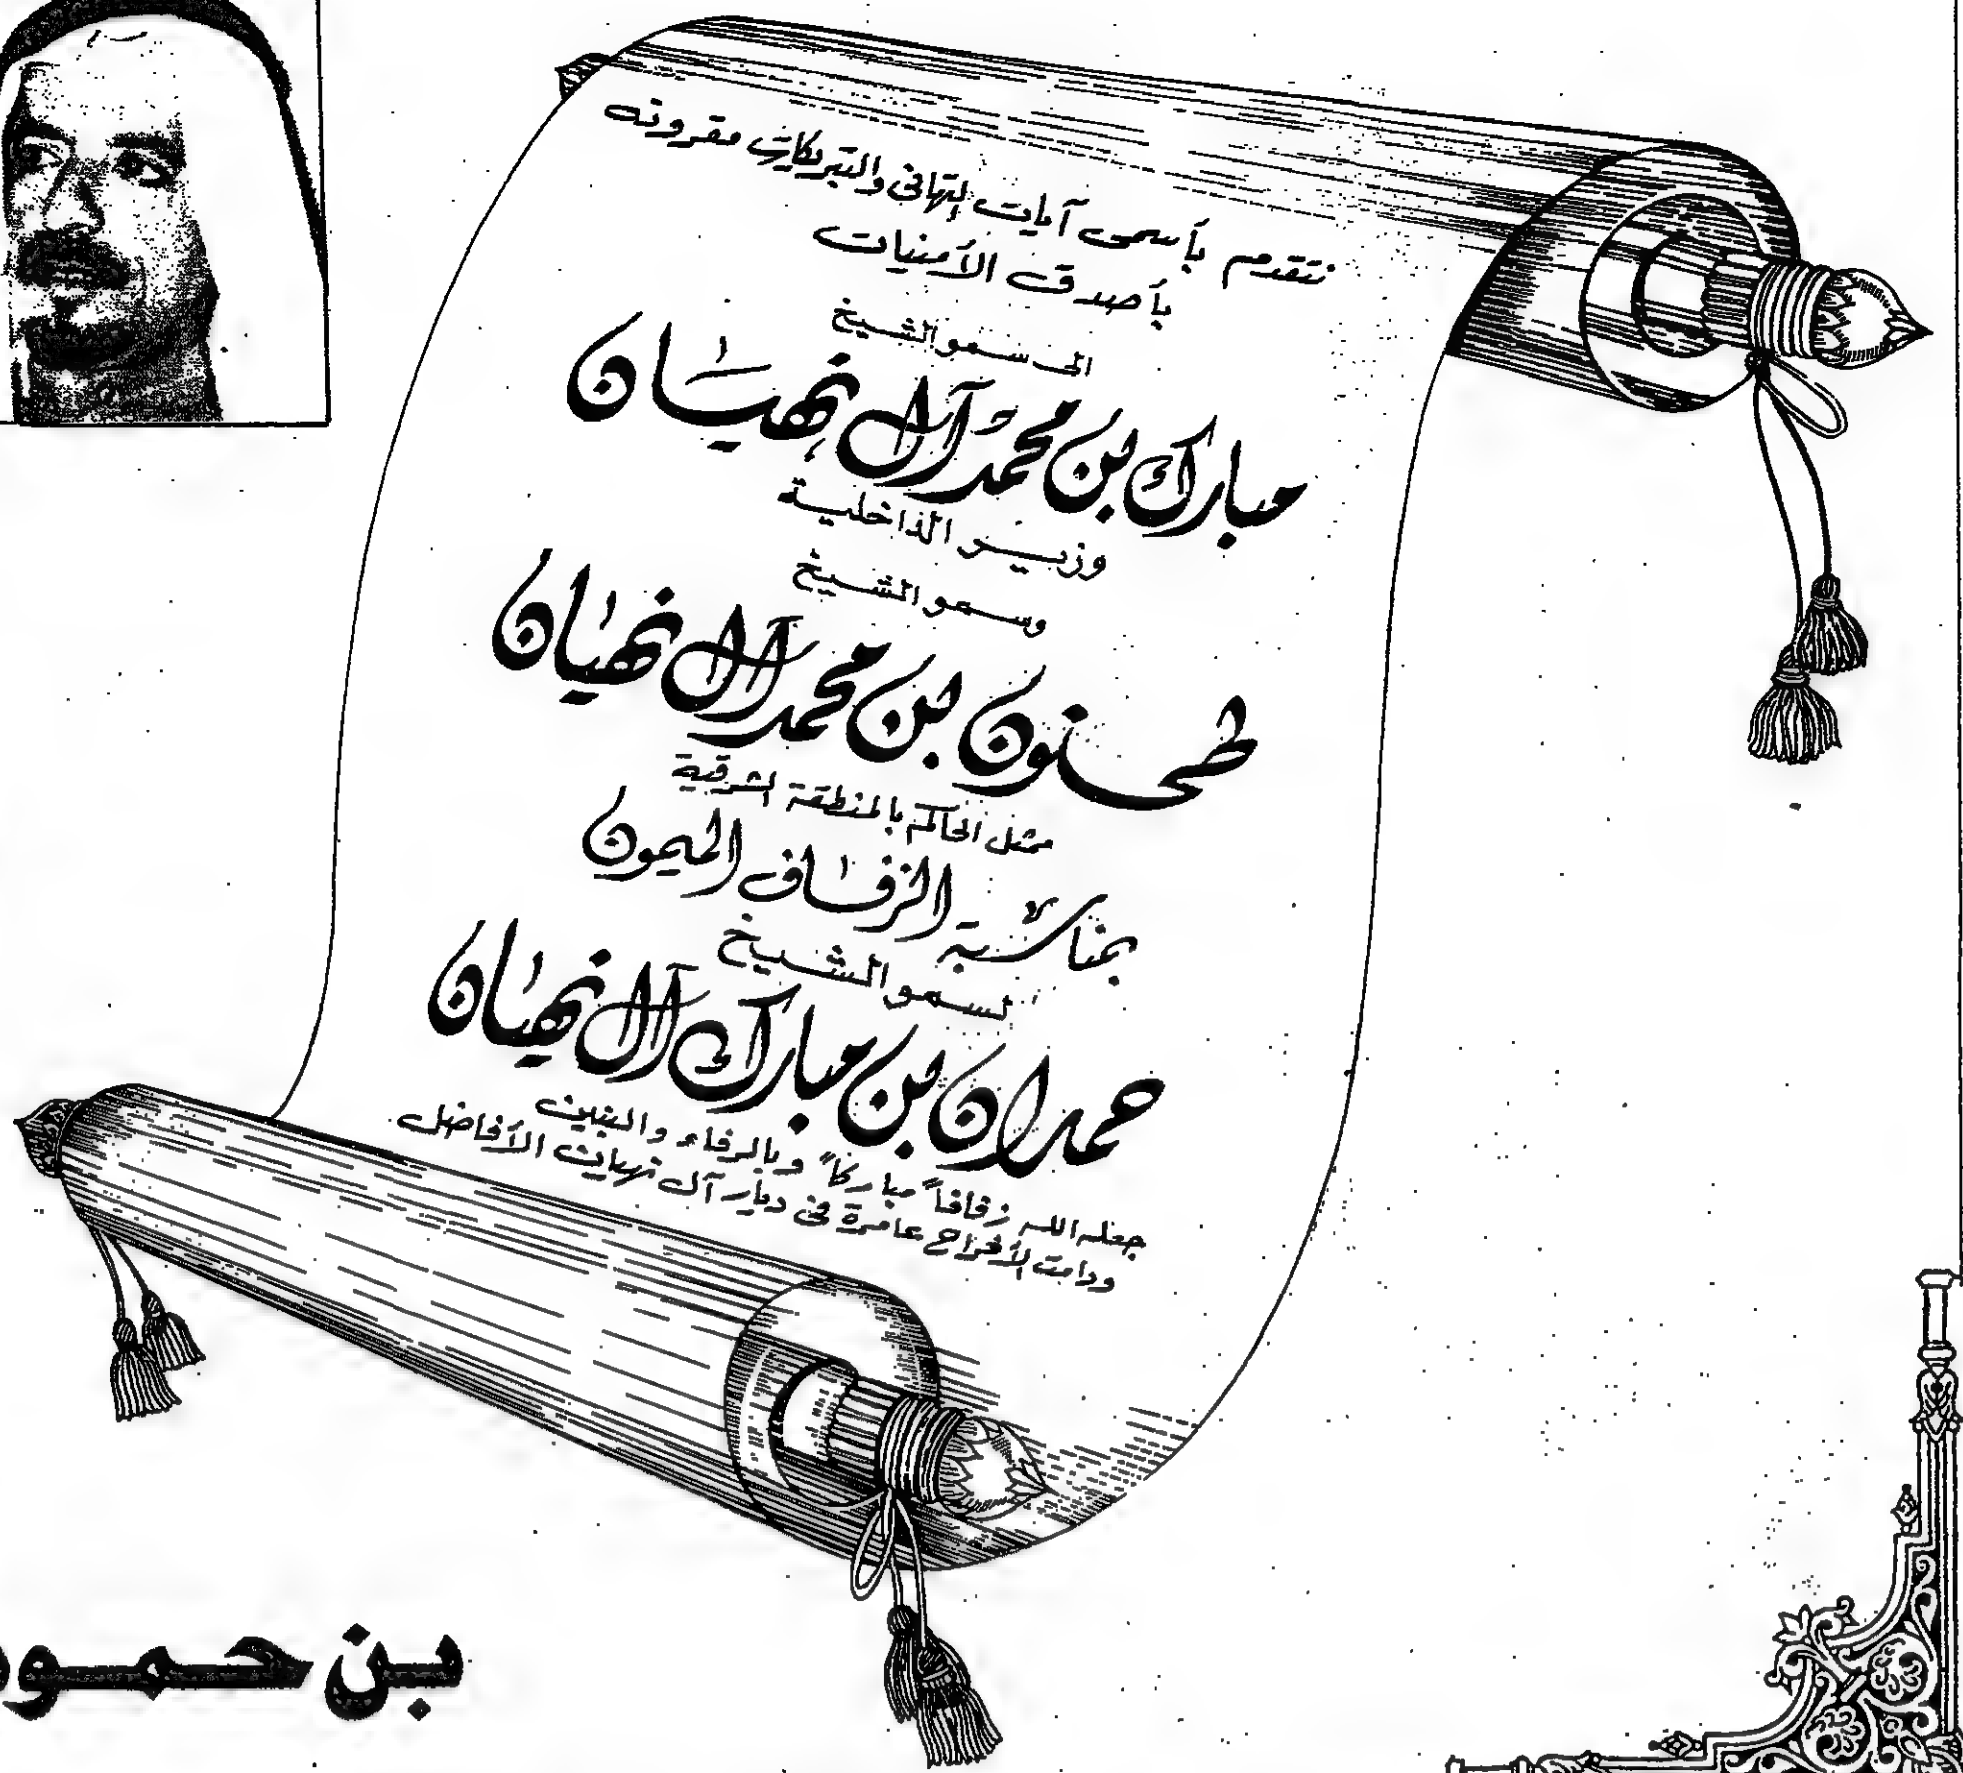 نتقدم بأسمى آيات التهاني والتبريكات مقرونه
بأصدق الأمنيات
الى سمو الشيخ
مبارك بن محمد آل نهيان
وزير الداخلية
وسمو الشيخ
طحنون بن محمد آل نهيان
ممثل الحاكم بالمنطقة الشرقية
بمناسبة الزفاف الميمون
لسمو الشيخ
حمدان بن مبارك آل نهيان
جعله الله زفافاً مباركاً وبالرفاء والبنين
ودامت الأفراح عامرة في ديار آل نهيان الأفاضل
بن حمو